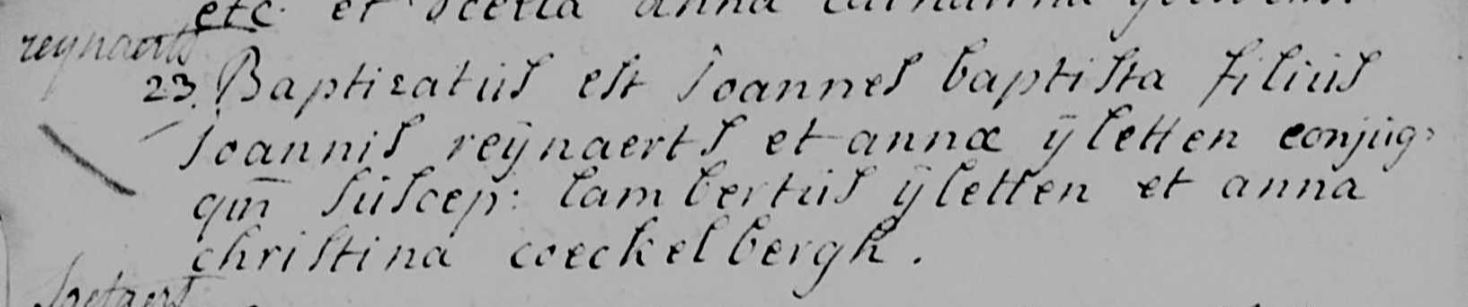 etc et
anna
reynaerts
23. Baptizatus est Joannes baptista filius
Joannis reÿnaerts et annæ ÿletten conjug:
qm̄ suscep: lambertus ÿletten et anna
christina coeckelbergh.